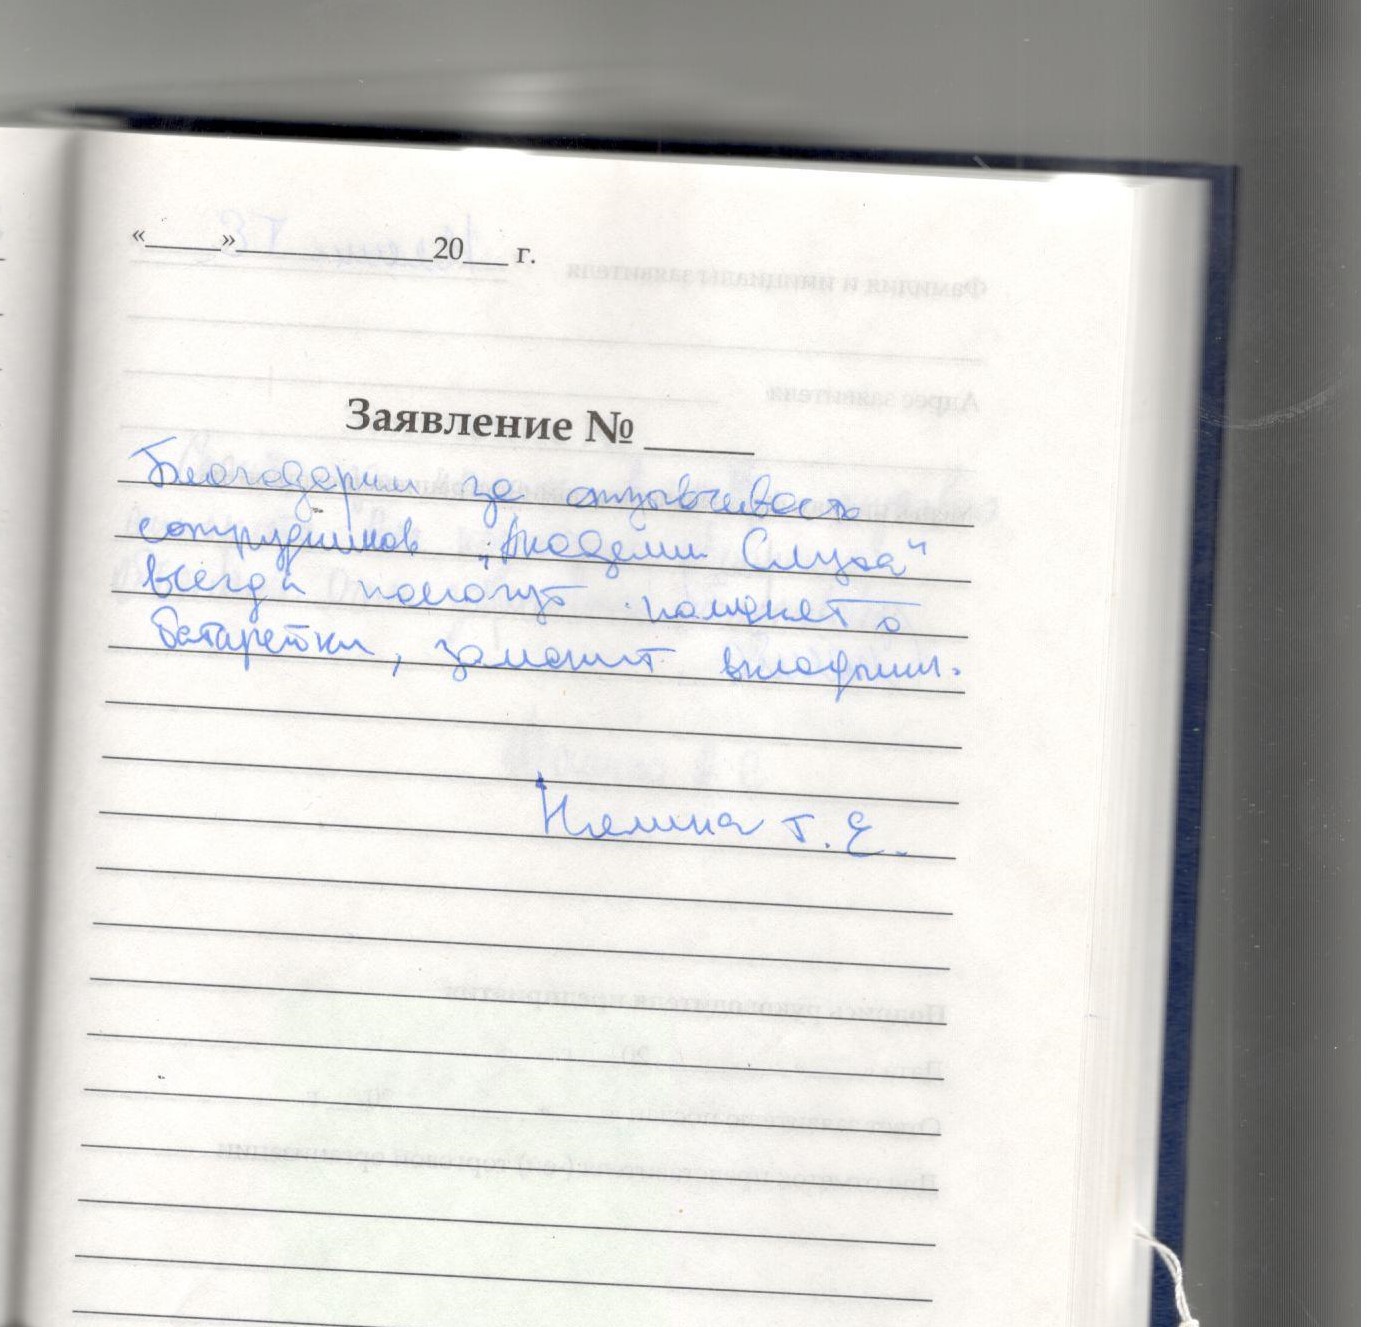 «____»__________20___ г.
Заявление № _____
Благодарим за отзывчивость
сотрудников „Академи Слуха"
всегда помогут поменят
батарейки, заменит вкладыши.
Т. Е.